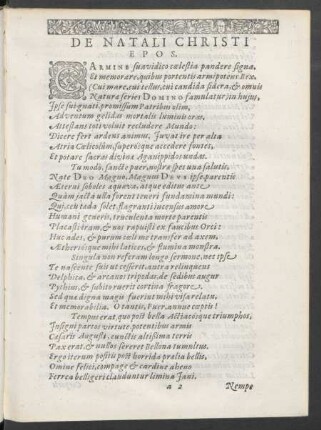 DE NATALI CHRISTI
EPOS.
CARMINE suavidico cælestia pandere signa,
Et memorare, quibus portentis armipotens Rex
(Cui mare, cui tellus, cui candida sidera, & omnis
Naturæ series DOMINO famulatur) in huius,
Jose fut
promissum Patribus olim,
Adventum gelidas mortalis luminis oras,
Attestans toti voluit recludere Mundo:
Dicere fert ardens animus, Juvat ire per alta
Atria Cælicolûm, superosque accedere fontes,
Et potare sacras divina Aganippidos undas.
Tu modò, sancte puer, nostra spes una salutis,
Nate DEO Magno, Magnum DONUM ipse parentis
Æterni soboles æquæva, atque editus ante
Quàm jacta ulla forent teneri fundamina mundi:
Qui, ceu tæda solet, flagranti incensus amore
Humani generis, truculenta morte parentis
Placasti iram, & nos rapuisti ex faucibus Orci:
Huc ades, & purum cæli me transfer ad axem.
Æthereosque mihi latices, & flumina monstra.
Singula non referam longo sermone, met ipse
Te nascente fuit ut cesserit, antra relinquens
Delphica, & arcanos tripodas, de sedibus augur
Pythius, & subito ruerit cortina fragore.
Sed qua digna magis fuerint mihi visa relatu,
Et memorabilia. Ô ventis, Puer, annue cœptis!
Tempus erat, quo post bella Actiacosque triumphos,
Insigni partos virtute, potentibus armis
Cæsaris Augusti, cunctis altissima terris
Pax erat, & nullus sereret Bellona tumultus.
Ergo iterum positis post horrida prælia bellis,
Omine felici, compage & cardine aheno
Ferrea belligeri clauduntur limina Jani.
a 2
Nempe